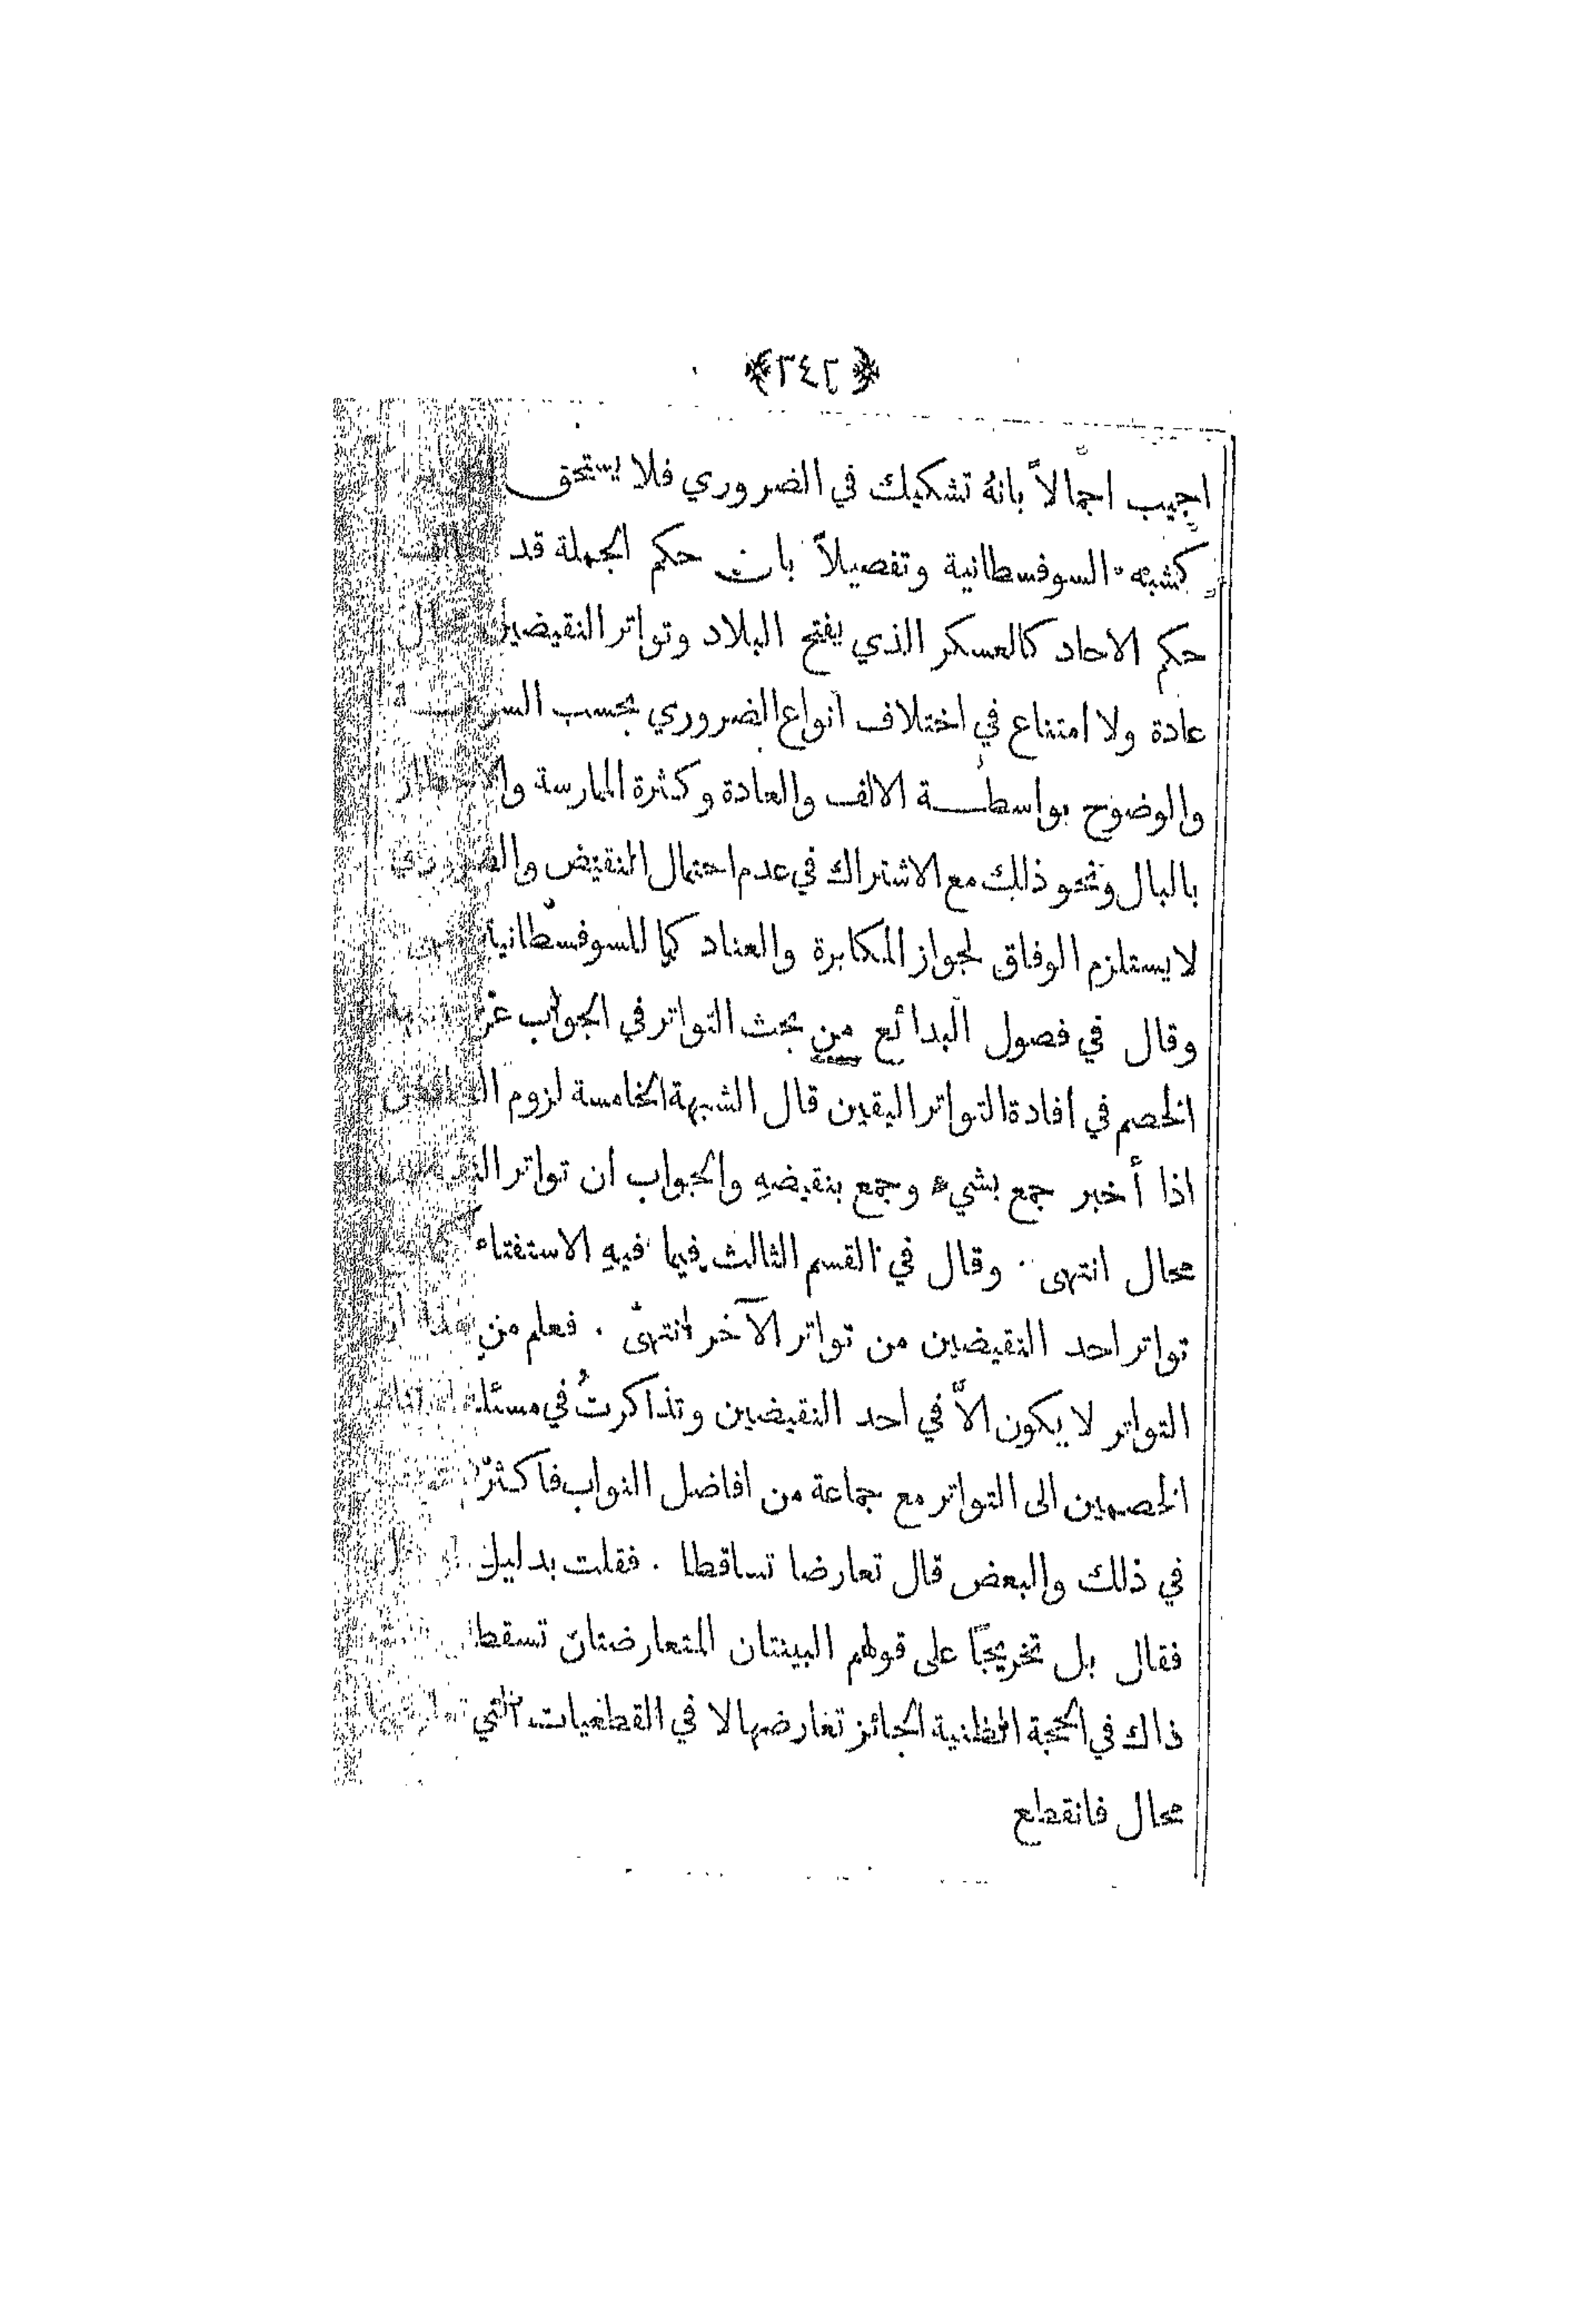 ﴿٣٤٢﴾
اجيب اجمالاً بانهُ تشكيك في الضروري فلا يستحق
كشبه السوفسطانية وتفصيلاً بان حكم الجملة قد
حكم الاحاد كالعسكر الذي يفتح البلاد وتواتر النقيضين
عادة ولا امتناع في اختلاف انواع الضروري بحسب
والوضوح بواسطة الالف والعادة وكثرة الممارسة
بالبال ونحو ذلك مع الاشتراك في عدم احتمال النقيض
لا يستلزم الوفاق لجواز المكابرة والعناد كما للسوفسطانية
وقال في فصول البدائع من بحث التواتر في الجواب عن
الخصم في افادة التواتر اليقين قال الشبهة الخامسة لزوم
اذا أخبر جمع بشيء وجمع بنقيضهِ والجواب ان تواتر
محال انتهى . وقال في القسم الثالث فيما فيهِ الاستفتاء
تواتر احد النقيضين من تواتر الآخر انتهى . فعلم من
التواتر لا يكون الاَّ في احد النقيضين وتذاكرتُ في مسئلة
الخصمين الى التواتر مع جماعة من افاضل النواب فاكثرُ
في ذلك والبعض قال تعارضا تساقطا . فقلت بدليل
فقال بل تخريجاً على قولهم البينتان المتعارضتان تسقطا
ذاك في الحجة الظنية الجائز تعارضها لا في القطعيات التي
محال فانقطع